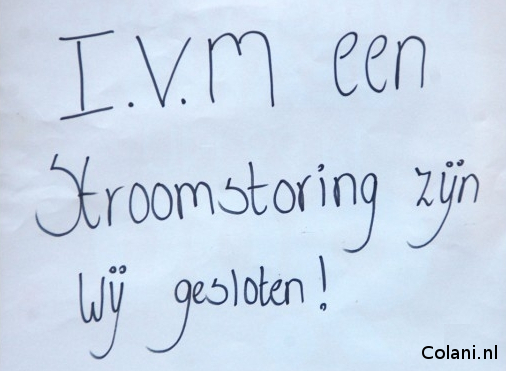 I.V.M een
Stroomstoring zijn
wij gesloten!
Colani.nl